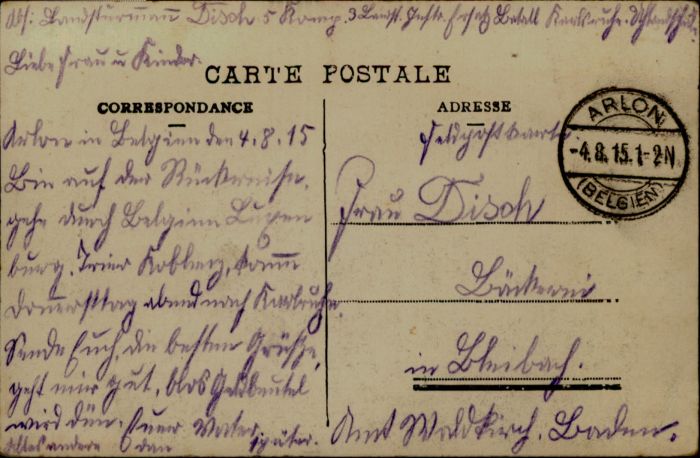 Abs: Landsturmann Disch 5 Komp. 3 Landst. Inftr. Ersatz Batall Karlsruhe.
Liebe Frau u Kinder.
CARTE POSTALE
CORRESPONDANCE
Arlon in Belgien den 4.8.15
Bin auf der Rückreise,
gehe durch Belgien Luxem
burg. Trier Koblenz, komm
Donnersttag abend nach Karlsruhe.
Sende Euch, die besten Grüße,
geht mir gut, blos Geldbeutel
wird dün. Euer Vater.
Alles andere dan später.
ADRESSE
Feldpostkarte.
ARLON
-4.8.15.1-2N
(BELGIEN)
Frau Disch
Bäckerei
in Bleibach.
Amt Waldkirch. Baden.